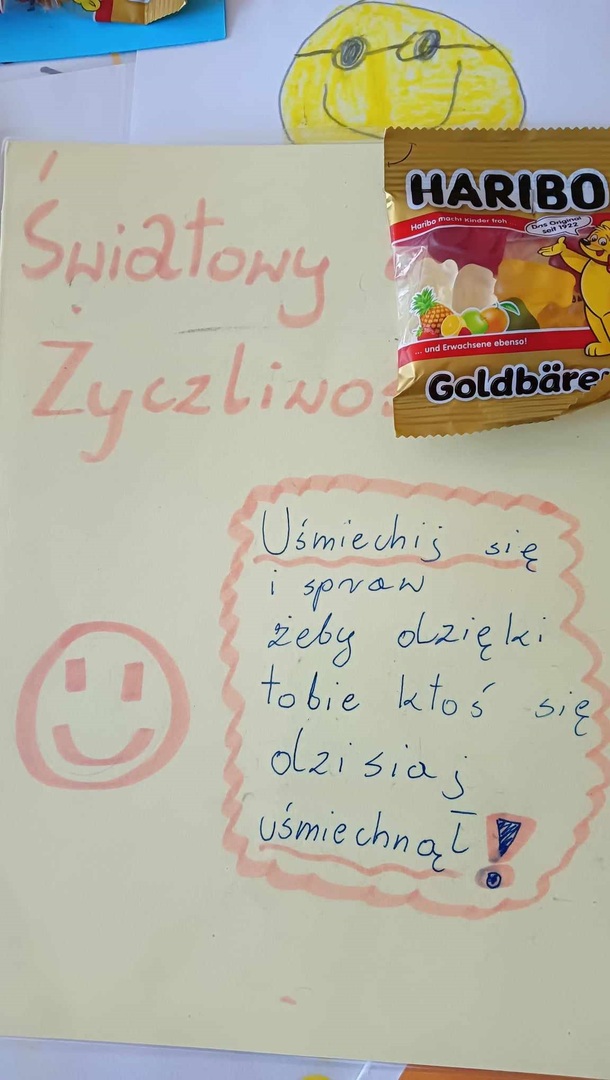 HARIBO
Haribo macht Kinder froh
Das Original
seit 1922
... und Erwachsene ebenso!
Goldbären
Światowy
Życzliwoś
Uśmiechij się
i spraw
żeby dzięki
tobie ktoś się
dzisiaj
uśmiechnął!